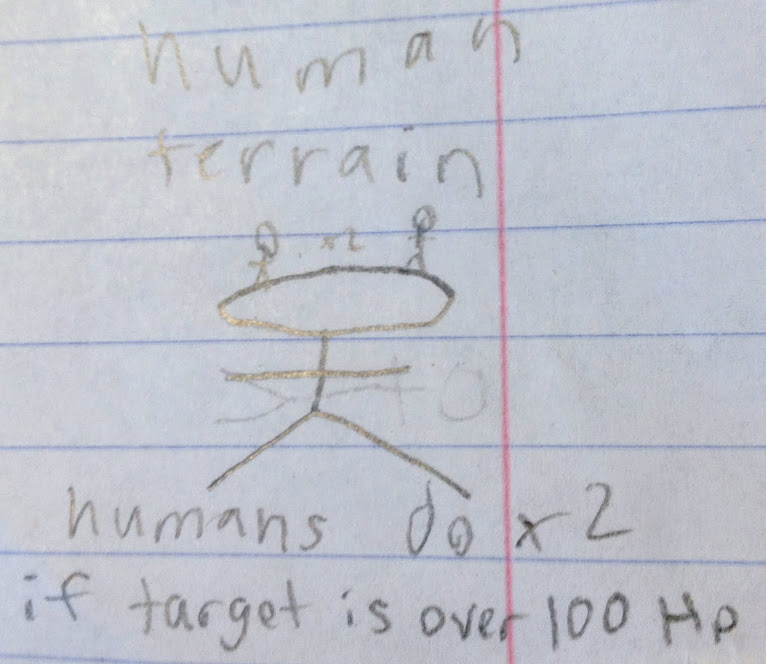 human
terrain
x2
humans do x2
if target is over 100 Hp